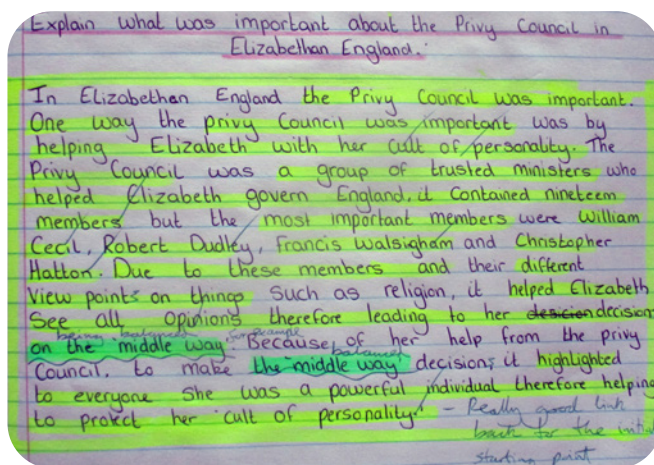 Explain what was important about the Privy Council in
Elizabethan England.
In Elizabethan England the Privy Council was important.
One way the privy Council was important was by
helping Elizabeth with her cult of personality. The
Privy Council was a group of trusted ministers who
helped Elizabeth govern England, it contained nineteen
members but the most important members were William
Cecil, Robert Dudley, Francis Walsigham and Christopher
Hatton. Due to these members and their different
View points on things such as religion, it helped Elizabeth
See all opinions therefore leading to her desicion decision
being balanced
on the 'middle way'. Because of her help from the privy
balanced
Council, to make 'the middle way' decision, it highlighted
to everyone She was a powerful individual therefore helping
to protect her 'cult of personality'. - Really good link
back for the initial
starting point